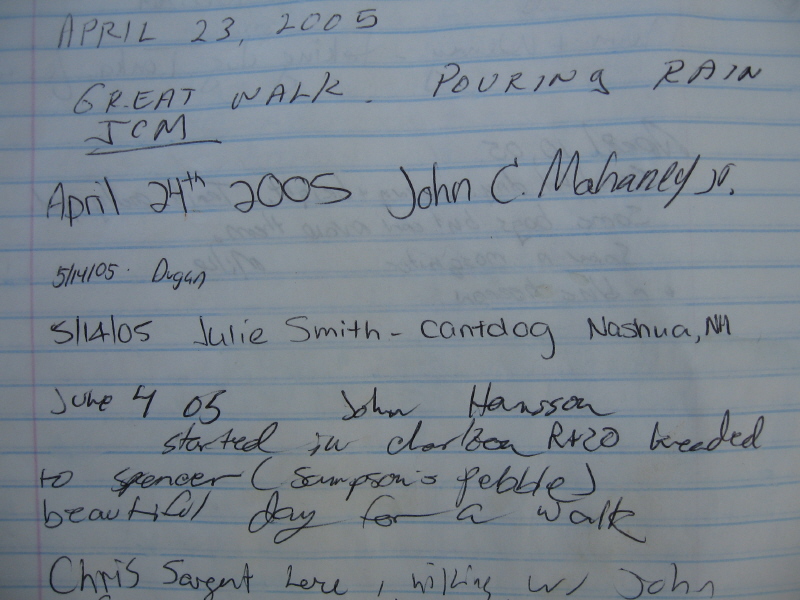 APRIL 23, 2005
GREAT WALK. POURING RAIN
JCM
April 24th 2005 John C. Mahaney Jr.
5/14/05 Dugan
5/14/05 Julie Smith - cantdog Nashua, NH
June 4 05 John Hansson
started in charlton Rt 20 headed
to spencer (Sampson's pebble)
beautiful day for a walk
Chris Sargent here, hiking w/ John